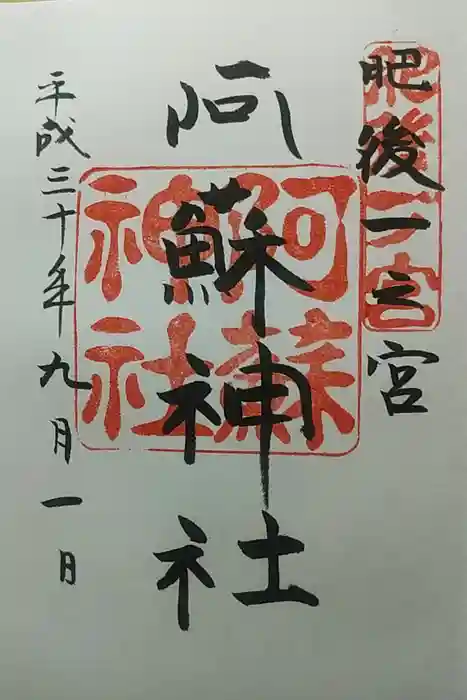 肥後一之宮
肥後一宮
阿蘇神社
阿蘇神社
平成三十年九月一日